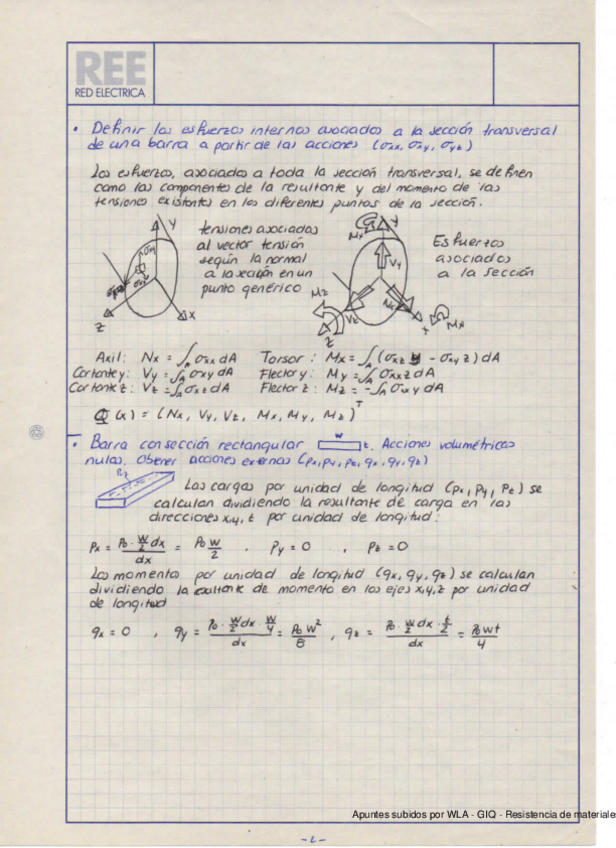 REE
RED ELECTRICA
• Definir los esfuerzos internos asociados a la sección transversal
de una barra a partir de las acciones (σxx, σxy, σyz)
Los esfuerzos, asociados a toda la sección transversal, se definen
como las componentes de la resultante y del momento de las
tensiones existentes en los diferentes puntos de la sección.
tensiones asociadas
al vector tensión
según la normal
a la sección en un
punto genérico
Esfuerzos
asociados
a la sección
Y
σxy
σxx
X
Z
Y
Mx
Vy
Mz
Vz
Nx
X
Mx
Z
Axil: Nx = ∫A σxx dA Torsor: Mx = ∫A (σxz y - σxy z) dA
Cortante y: Vy = ∫A σxy dA Flector y: My = ∫A σxx z dA
Cortante z: Vz = ∫A σxz dA Flector z: Mz = -∫A σxx y dA
Q (x) = (Nx, Vy, Vz, Mx, My, Mz)^T
• Barra con sección rectangular w t. Acciones volumétricas
nulas. Obtener acciones externas (px, py, pz, qx, qy, qz)
Po
Las cargas por unidad de longitud (px, py, pz) se
calculan dividiendo la resultante de carga en las
direcciones x,y,z por unidad de longitud:
Px = (Po · w/2 dx)/dx = Po w/2 , Py = 0 , Pz = 0
Los momentos por unidad de longitud (qx, qy, qz) se calculan
dividiendo la resultante de momento en los ejes x,y,z por unidad
de longitud
qx = 0 , qy = (Po · w/2 dx · w/4)/dx = Po w²/8 , qz = (Po · w/2 dx · t/2)/dx = Po w t/4
Apuntes subidos por WLA - GIQ - Resistencia de materiales
- 2 -